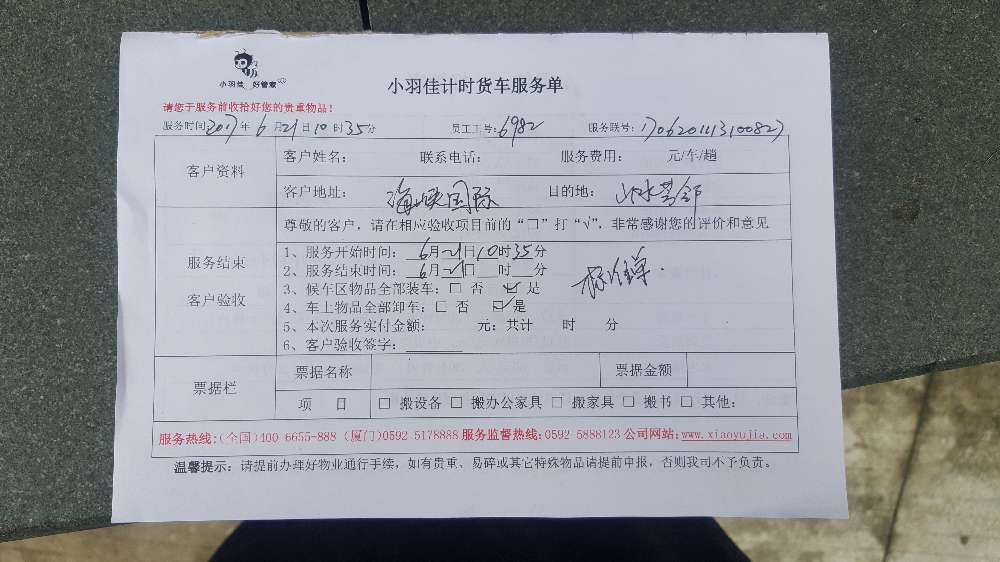 小羽佳 好管家
小羽佳计时货车服务单
请您于服务前收拾好您的贵重物品！
服务时间：2017年6月21日10时35分 员工工号：6982 服务联号：170620111310082
客户资料
客户姓名： 联系电话： 服务费用： 元/车/趟
客户地址： 海峡国际 目的地： 山水芳邻
服务结束
客户验收
尊敬的客户，请在相应验收项目前的“□”打“√”，非常感谢您的评价和意见
1、服务开始时间：6月21日10时35分
2、服务结束时间：6月21日 时 分
3、候车区物品全部装车：□ 否 ☑ 是
4、车上物品全部卸车：□ 否 ☑是
5、本次服务实付金额： 元：共计 时 分
6、客户验收签字：
票据栏
票据名称 票据金额
项 目 □ 搬设备 □ 搬办公家具 □ 搬家具 □ 搬书 □ 其他：
服务热线：(全国)400 6655-888 (厦门)0592 5178888 服务监督热线：0592-5888123 公司网站：www.xiaoyujia.com
温馨提示：请提前办理好物业通行手续，如有贵重、易碎或其它特殊物品请提前申报，否则我司不予负责。